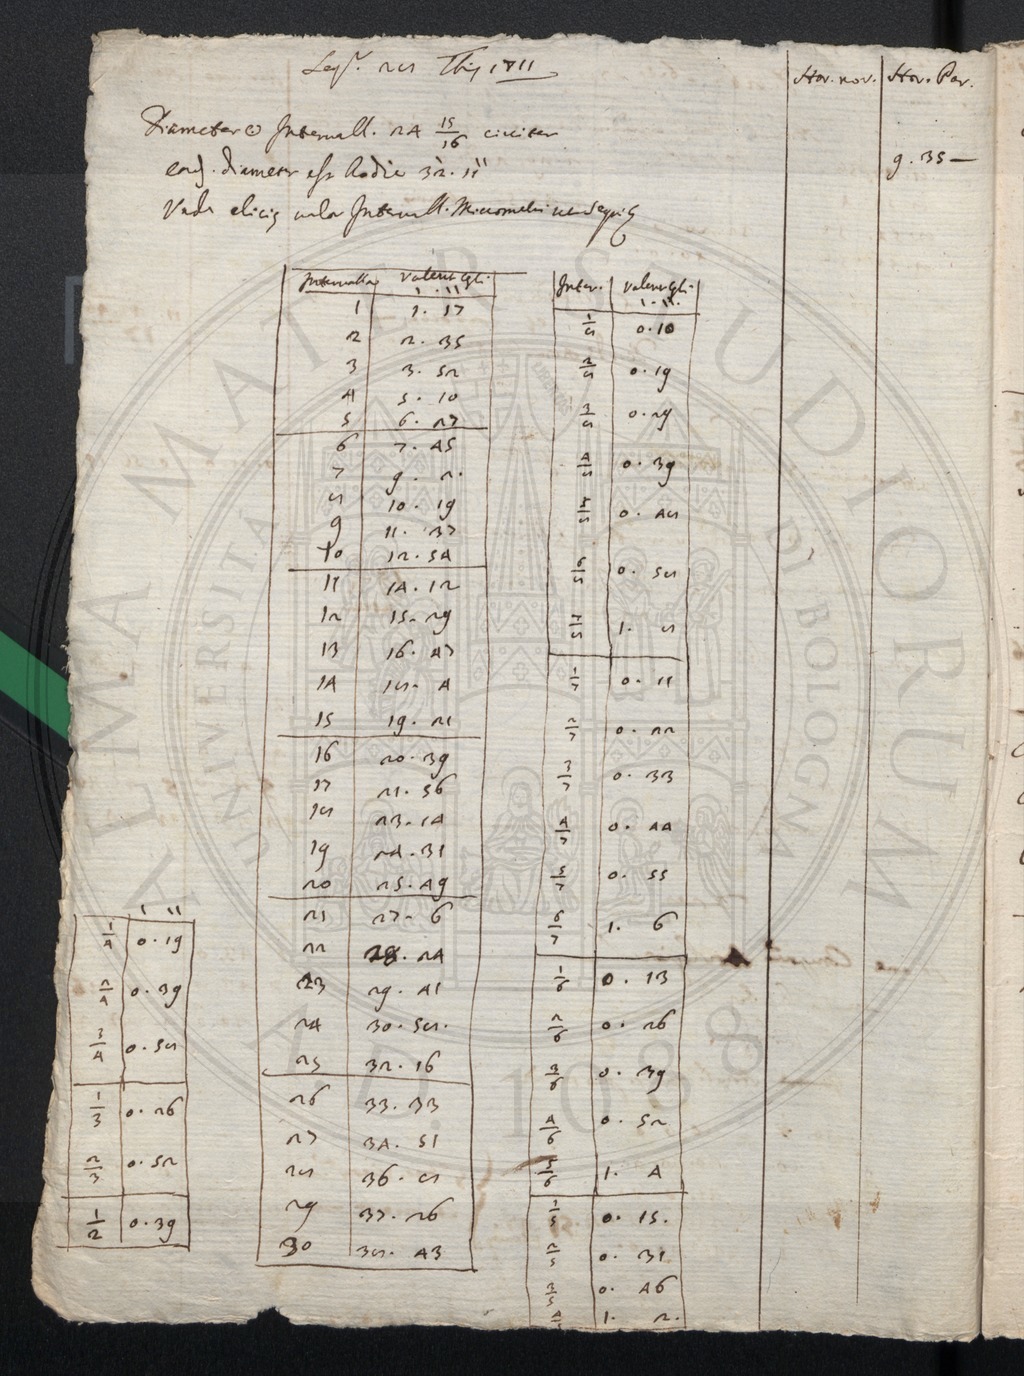 28 7bris 1711
Hor. nov. Hor. Par.
Diameter ☉ Intervall. 24 15/16 circiter
9. 35 —
diameter est hodie 32'. 11"
Unde valor Intervall. Micrometri ut sequit
Intervalla Valent Gr.
' . "
1 1. 17
2 2. 35
3 3. 52
4 5. 10
5 6. 27
6 7. 45
7 9. 2.
8 10. 19
9 11. 37
10 12. 54
11 14. 12
12 15. 29
13 16. 47
14 18. 4
15 19. 21
16 20. 39
17 21. 56
18 23. 14
19 24. 31
20 25. 49
21 27. 6
22 28. 24
23 29. 41
24 30. 58.
25 32. 16
26 33. 33
27 34. 51
28 36. 8
29 37. 26
30 38. 43
Inter. Valent Gr.
' . ".
1/8 0. 10
2/8 0. 19
3/8 0. 29
4/8 0. 39
5/8 0. 48
6/8 0. 58
7/8 1. 8
1/7 0. 11
2/7 0. 22
3/7 0. 33
4/7 0. 44
5/7 0. 55
6/7 1. 6
1/6 0. 13
2/6 0. 26
3/6 0. 39
4/6 0. 52
5/6 1. 4
1/5 0. 15.
2/5 0. 31
3/5 0. 46
4/5 1. 2.
' "
1/4 0. 19
2/4 0. 39
3/4 0. 58
1/3 0. 26
2/3 0. 52
1/2 0. 39
ALMA MATER STUDIORUM
UNIVERSITÀ DI BOLOGNA
A.D. 1088